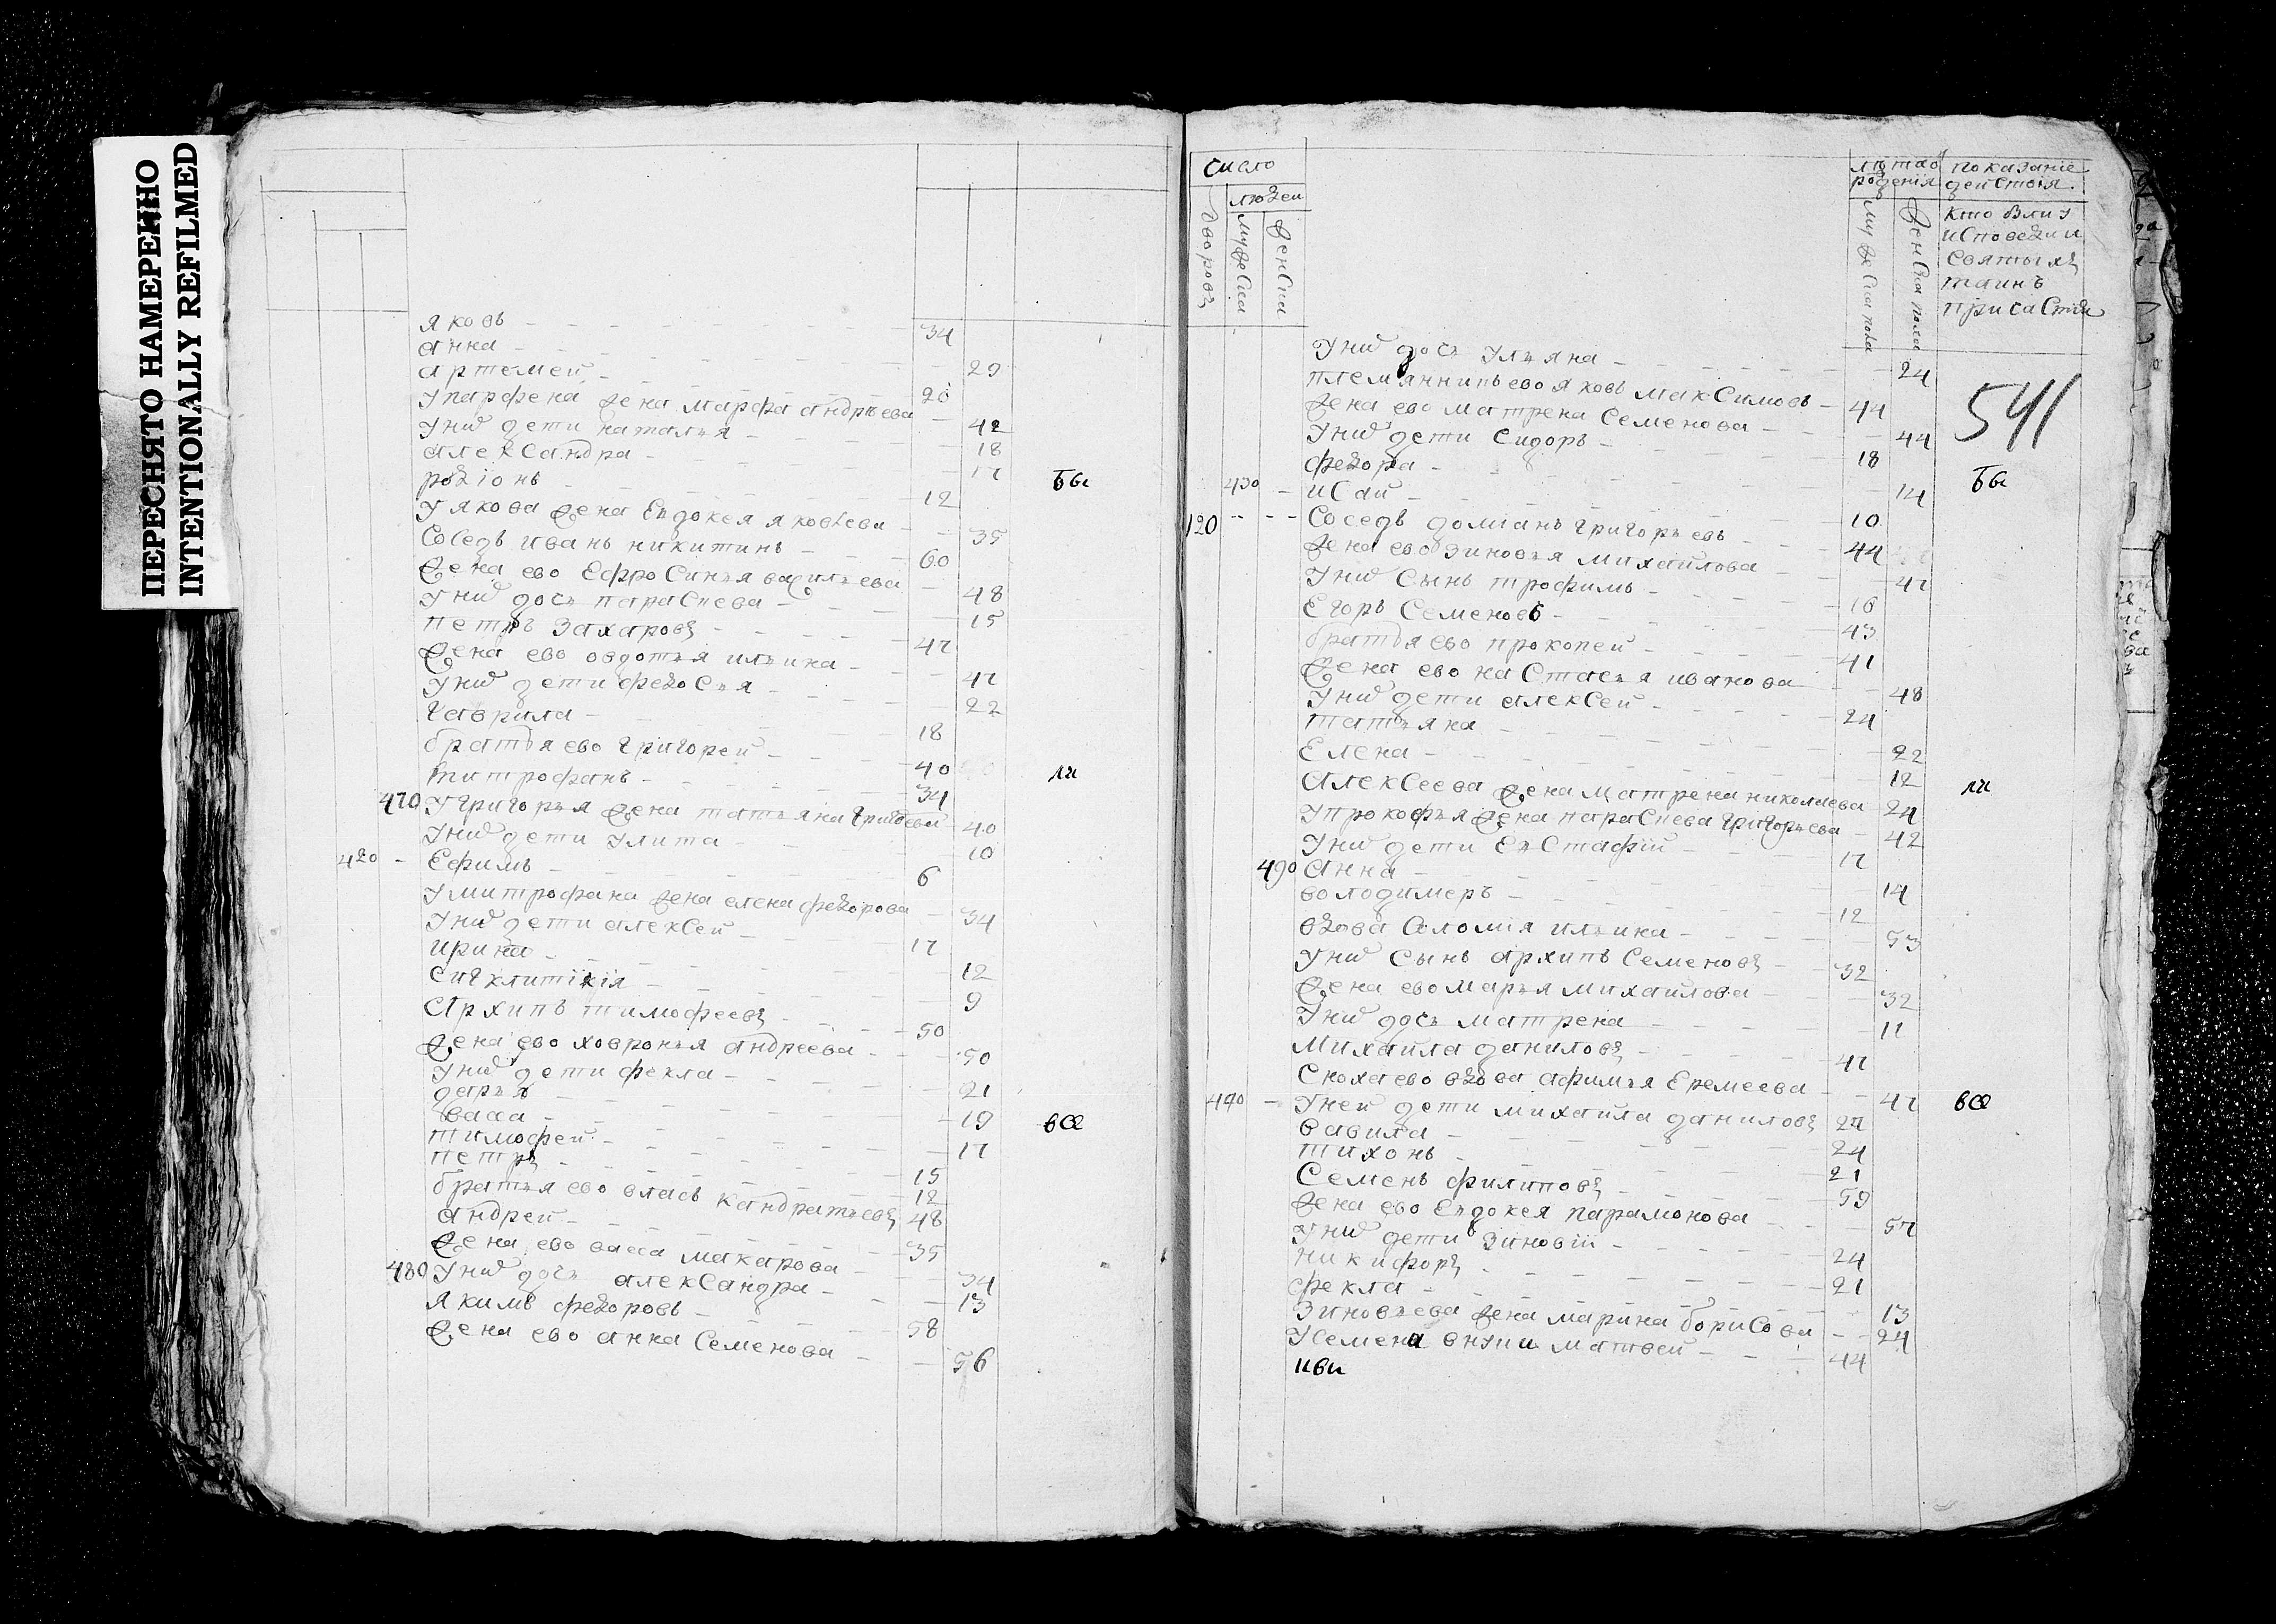 ПЕРЕСНЯТО НАМЕРЕННО
INTENTIONALLY REFILMED
яковъ 34
анна 29
артемей 20
упарфена жена марфа андрѣева 42
уних дети наталья 18
александра 17
родіонъ 12
Бы
уякова жена Евдокея яковлева 35
Соседъ иванъ никитинъ 60
жена ево Ефросинья васильева 48
уних дочь параскева 15
петръ захаровъ 47
жена ево овдотья ильина 47
уних дети федосья 22
гаврила 18
братья ево григорей 40
митрофанъ 34
ли
470 угригорья жена татьяна григорева 40
уних дети улита 10
420 Ефимъ 6
умитрофана жена елена федорова 34
уних дети алексей 17
ирина 12
сигклитикія 9
Архипъ тимофеевъ 50
жена ево ховронья андреева 50
уних дети фекла 21
дарья 19
васса 17
все
тимофей 15
петръ 12
братья ево власъ кандратьевъ 48
андрей 35
жена ево васса макарова 34
480 уних дочь александра 13
якимъ федоровъ 58
жена ево анна Семенова 56
число
дворовъ
людей
мужеска
женска
лѣта от рождения
мужеска пола
женска пола
показание действия
кто были у исповеди и святыхъ таинъ причастия
541
уних дочь ульяна 24
племянникъ ево яковъ максимовъ 44
жена ево матрена Семенова 44
уних дети Сидоръ 18
федора 14
Бы
430 исай 10
120 Соседъ доміанъ григорьевъ 44
жена ево зиновья михайлова 47
уних сынъ трофимъ 16
Егоръ Семеновъ 43
братья ево прокопей 41
жена ево настасья иванова 48
уних дети алексей 24
татьяна 22
Елена 12
Алексеева жена матрена николаева 24
ли
упрокофья жена параскева григорьева 42
уних дети Евстафій 17
490 Анна 14
володимеръ 12
вдова Соломія ильина 53
уних сынъ архипъ Семеновъ 32
жена ево марья михайлова 32
уних дочь матрена 11
михайла даниловъ 47
Сноха ево вдова афимья Еремеева 47
440 уней дети михайла даниловъ 27
все
вавила 24
тихонъ 21
Семенъ филиповъ 59
жена ево Евдокея парамонова 57
уних дети зиновій 24
никифоръ 21
фекла 13
зиновьева жена марина борисова 24
усемена внуки матвей 44